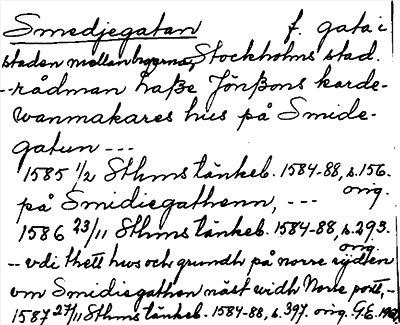 Smedjegatan f. gata i
staden mellan broarna, Stockholms stad.
-- rådman Laße Jönßons karde-
wanmakares hus på Smide-
gatun ---
1585 1/2 Sthms tänkeb. 1584-88, s. 156.
orig.
på Smidiegathenn, ---
1586 23/11 Sthms tänkeb. 1584-88, s. 293.
orig.
-- vdi thett hws och grundh på norre sijdten
om Smidiegathen näst widh Norre port, --
1587 27/11 Sthms tänkeb. 1584-88, s. 397. orig. G.E.